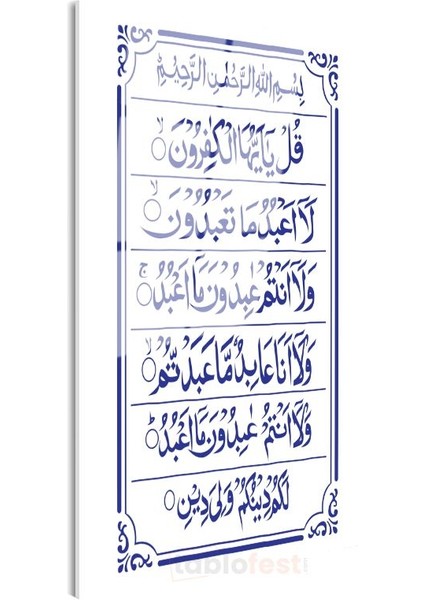 بِسْمِ اللهِ الرَّحْمٰنِ الرَّحِيْمِ
قُلْ يَا اَيُّهَا الْكٰفِرُوْنَ ۙ
لَآ اَعْبُدُ مَا تَعْبُدُوْنَ ۙ
وَلَآ اَنْتُمْ عٰبِدُوْنَ مَآ اَعْبُدُ ۚ
وَلَآ اَنَا عَابِدٌ مَّا عَبَدْتُّمْ ۙ
وَلَآ اَنْتُمْ عٰبِدُوْنَ مَآ اَعْبُدُ ؕ
لَكُمْ دِيْنُكُمْ وَلِيَ دِيْنِ
tablofest